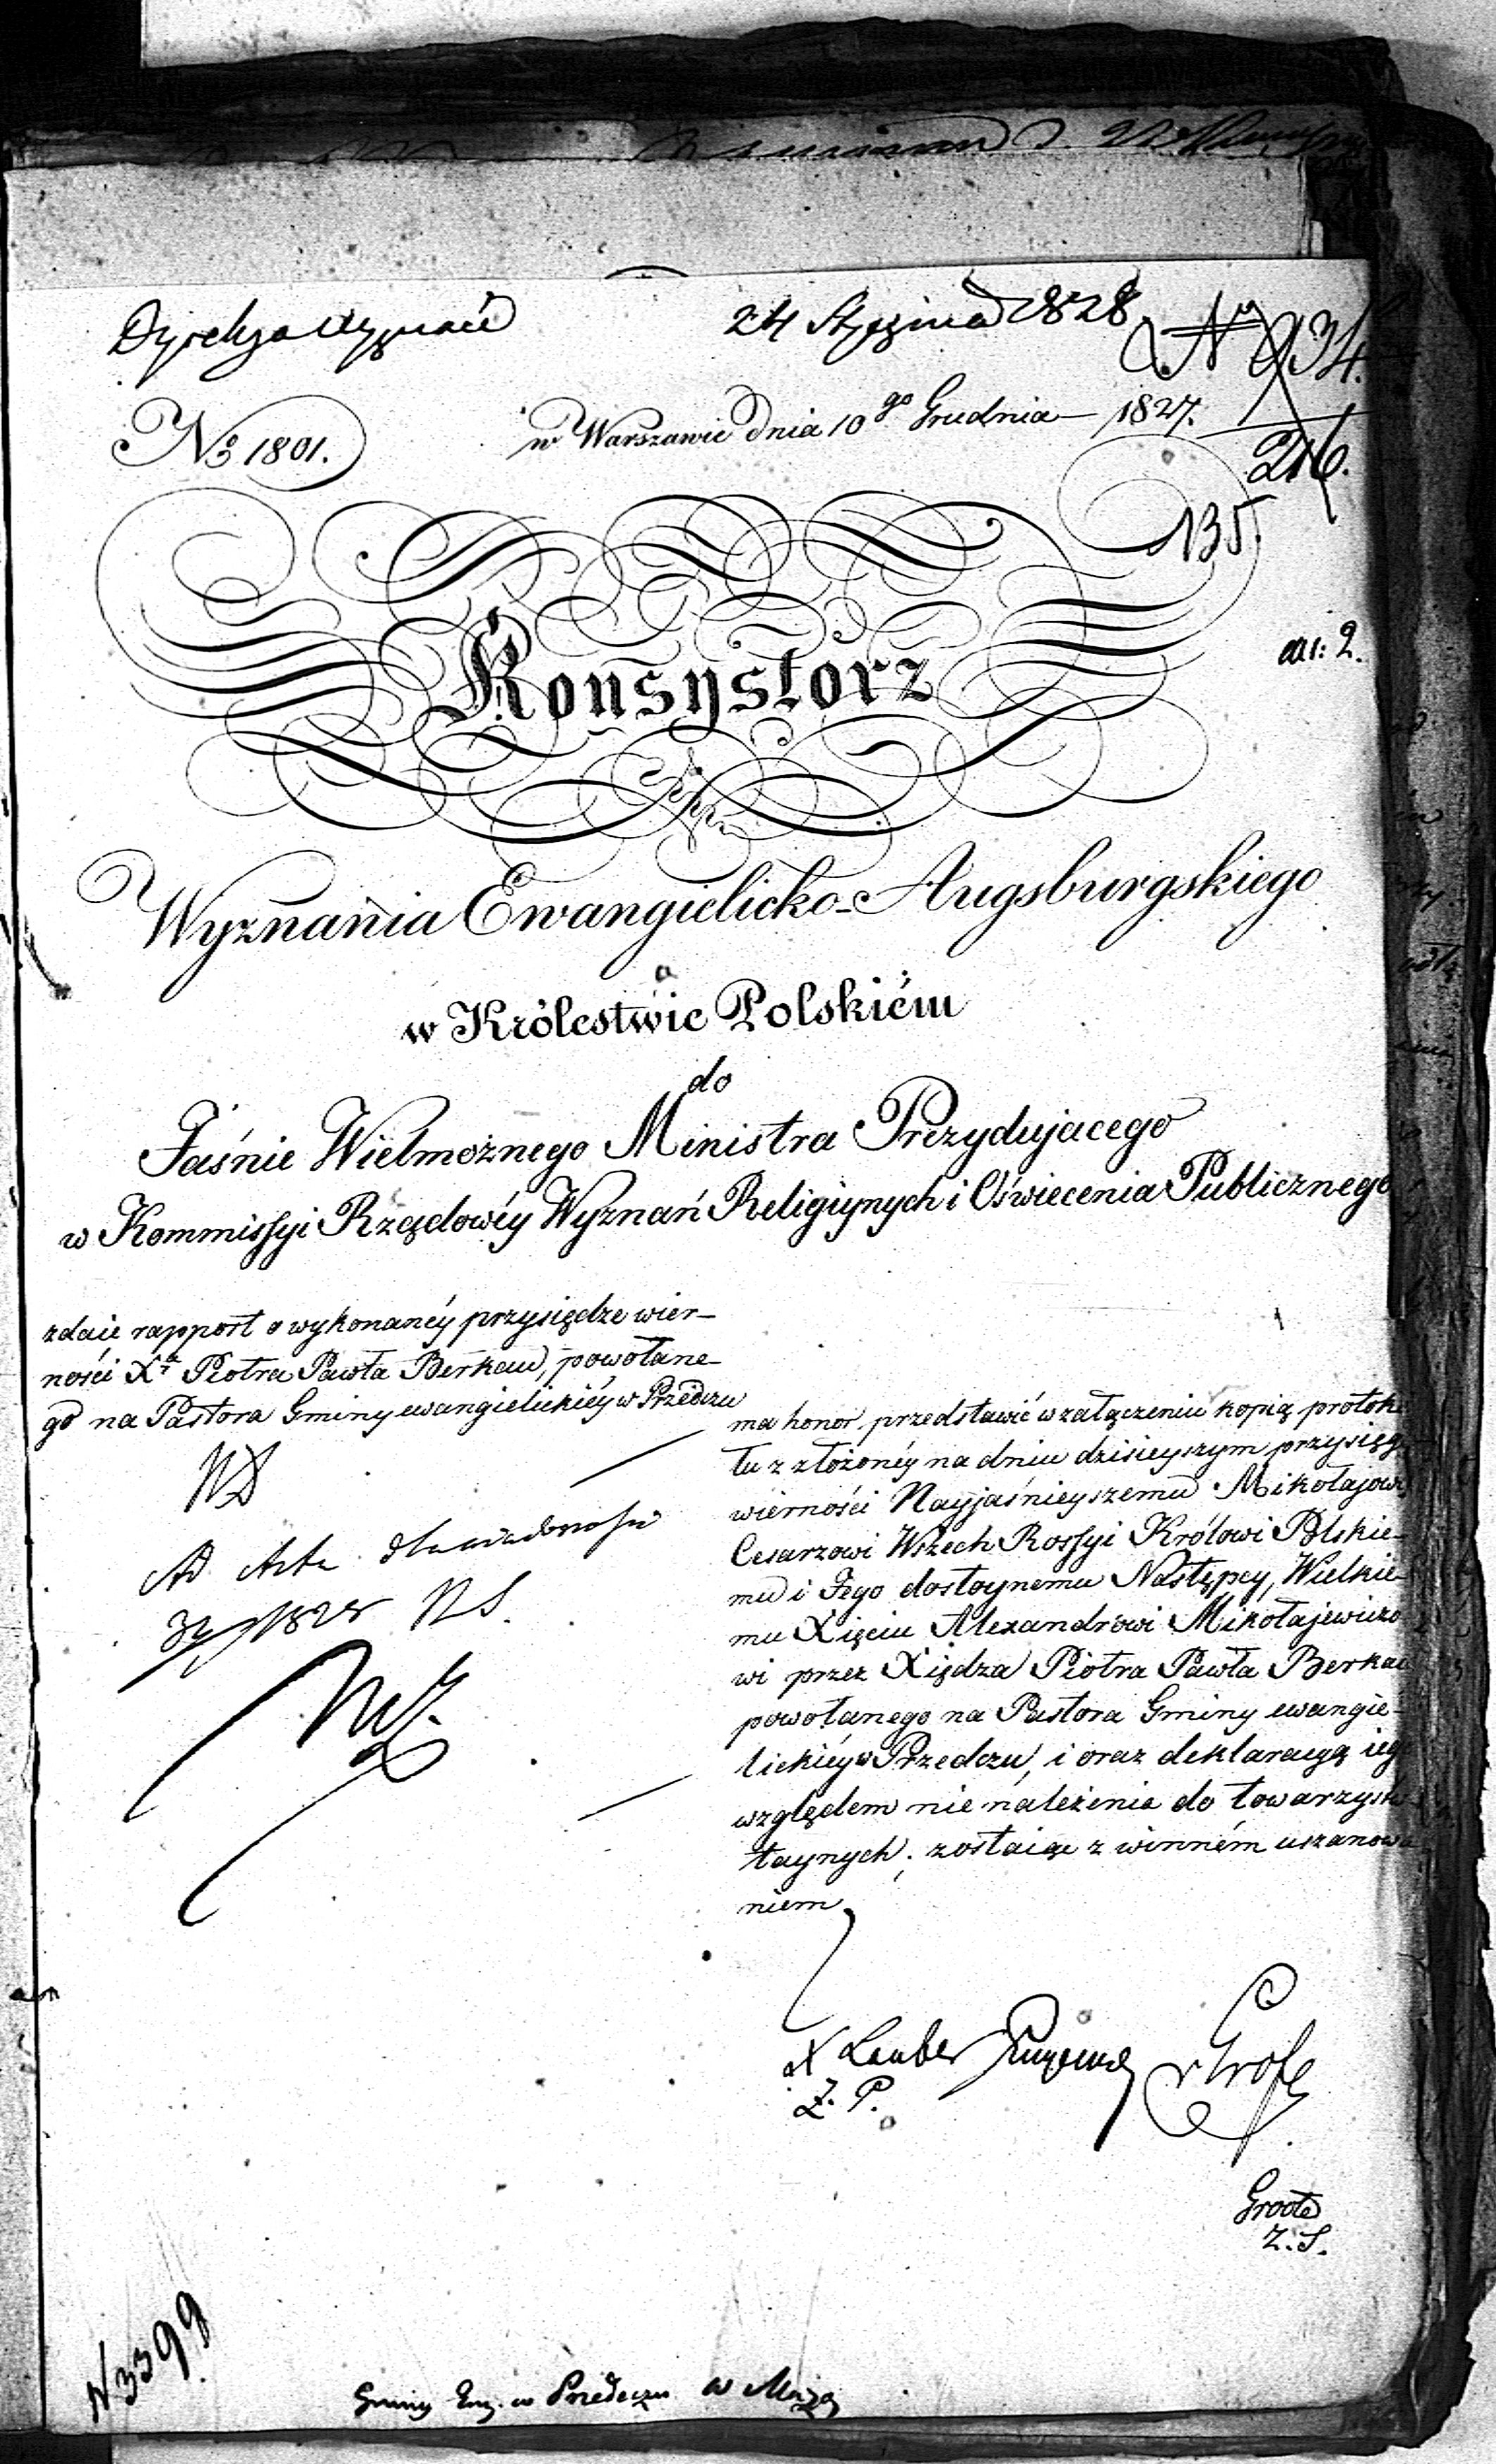 Dyrekcya Wyznań
24 Stycznia 1828
No 934.
216.
No 1801.
w Warszawie dnia 10go Grudnia 1827.
135.
Konsystorz
Wyznania Ewangielicko-Augsburgskiego
w Królestwie Polskiém
do
Jaśnie Wielmożnego Ministra Prezydujacego
w Kommissyi Rządowéy Wyznań Religiynych i Oświecenia Publicznego
zdaie rapport o wykonanéy przysiędze wier-
ności Xa Piotra Pawła Berkau, powołane-
go na Pastora Gminy ewangielickiéy w Przedczu
Ad Acta dla wiadomości
1828
ma honor przedstawić w załączeniu kopią protok
łu z złożonéy na dniu dzisieyszym przysięg
wierności Nayjaśnieyszemu Mikołajowi
Cesarzowi Wszech Rossyi Królowi Polskie-
mu i Jego dostoynemu Następcy, Wielkie-
mu Xięciu Alexandrowi Mikołajewiczo
wi przez Xiędza Piotra Pawła Berkau
powołanego na Pastora Gminy ewangie-
lickiéy w Przedczu, i oraz deklaracyą ieg
względem nie należenia do towarzystw
taynych; zostaiąc z winném uszanowa
niem
X Lauber
Z. P.
Groote
Z. S.
N 3399
Gminy Ewg. w Przedeczu w Maza